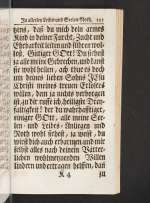 In allerley Leibes und Seelen Noth.
pens, daß du mich dein armes
Kind in deiner Furcht, Zucht und
Ehrbarkeit leiten und führen wol-
lest. Gütiger GOtt! Du siehest
ja alle meine Gebrechen, und kanst
sie wohl heilen, ach thue es doch
um deines lieben Sohns JEsu
Christi meines treuen Erlösers
willen, dem ja nichts verborgen
ist zu dir ruffe ich heiligste Dreyfal-
tigkeit! der du warhafftiger,
einiger GOtt, alle meine See-
len- und Leibes- Anliegen und
Noth wohl siehest, ja weist, du
wirst dich auch erbarmen, und mir
selbst alles nach deinem Vätter-
lichen wohlmeynenden Willen
lindern und ertragen helffen, daß
K 4